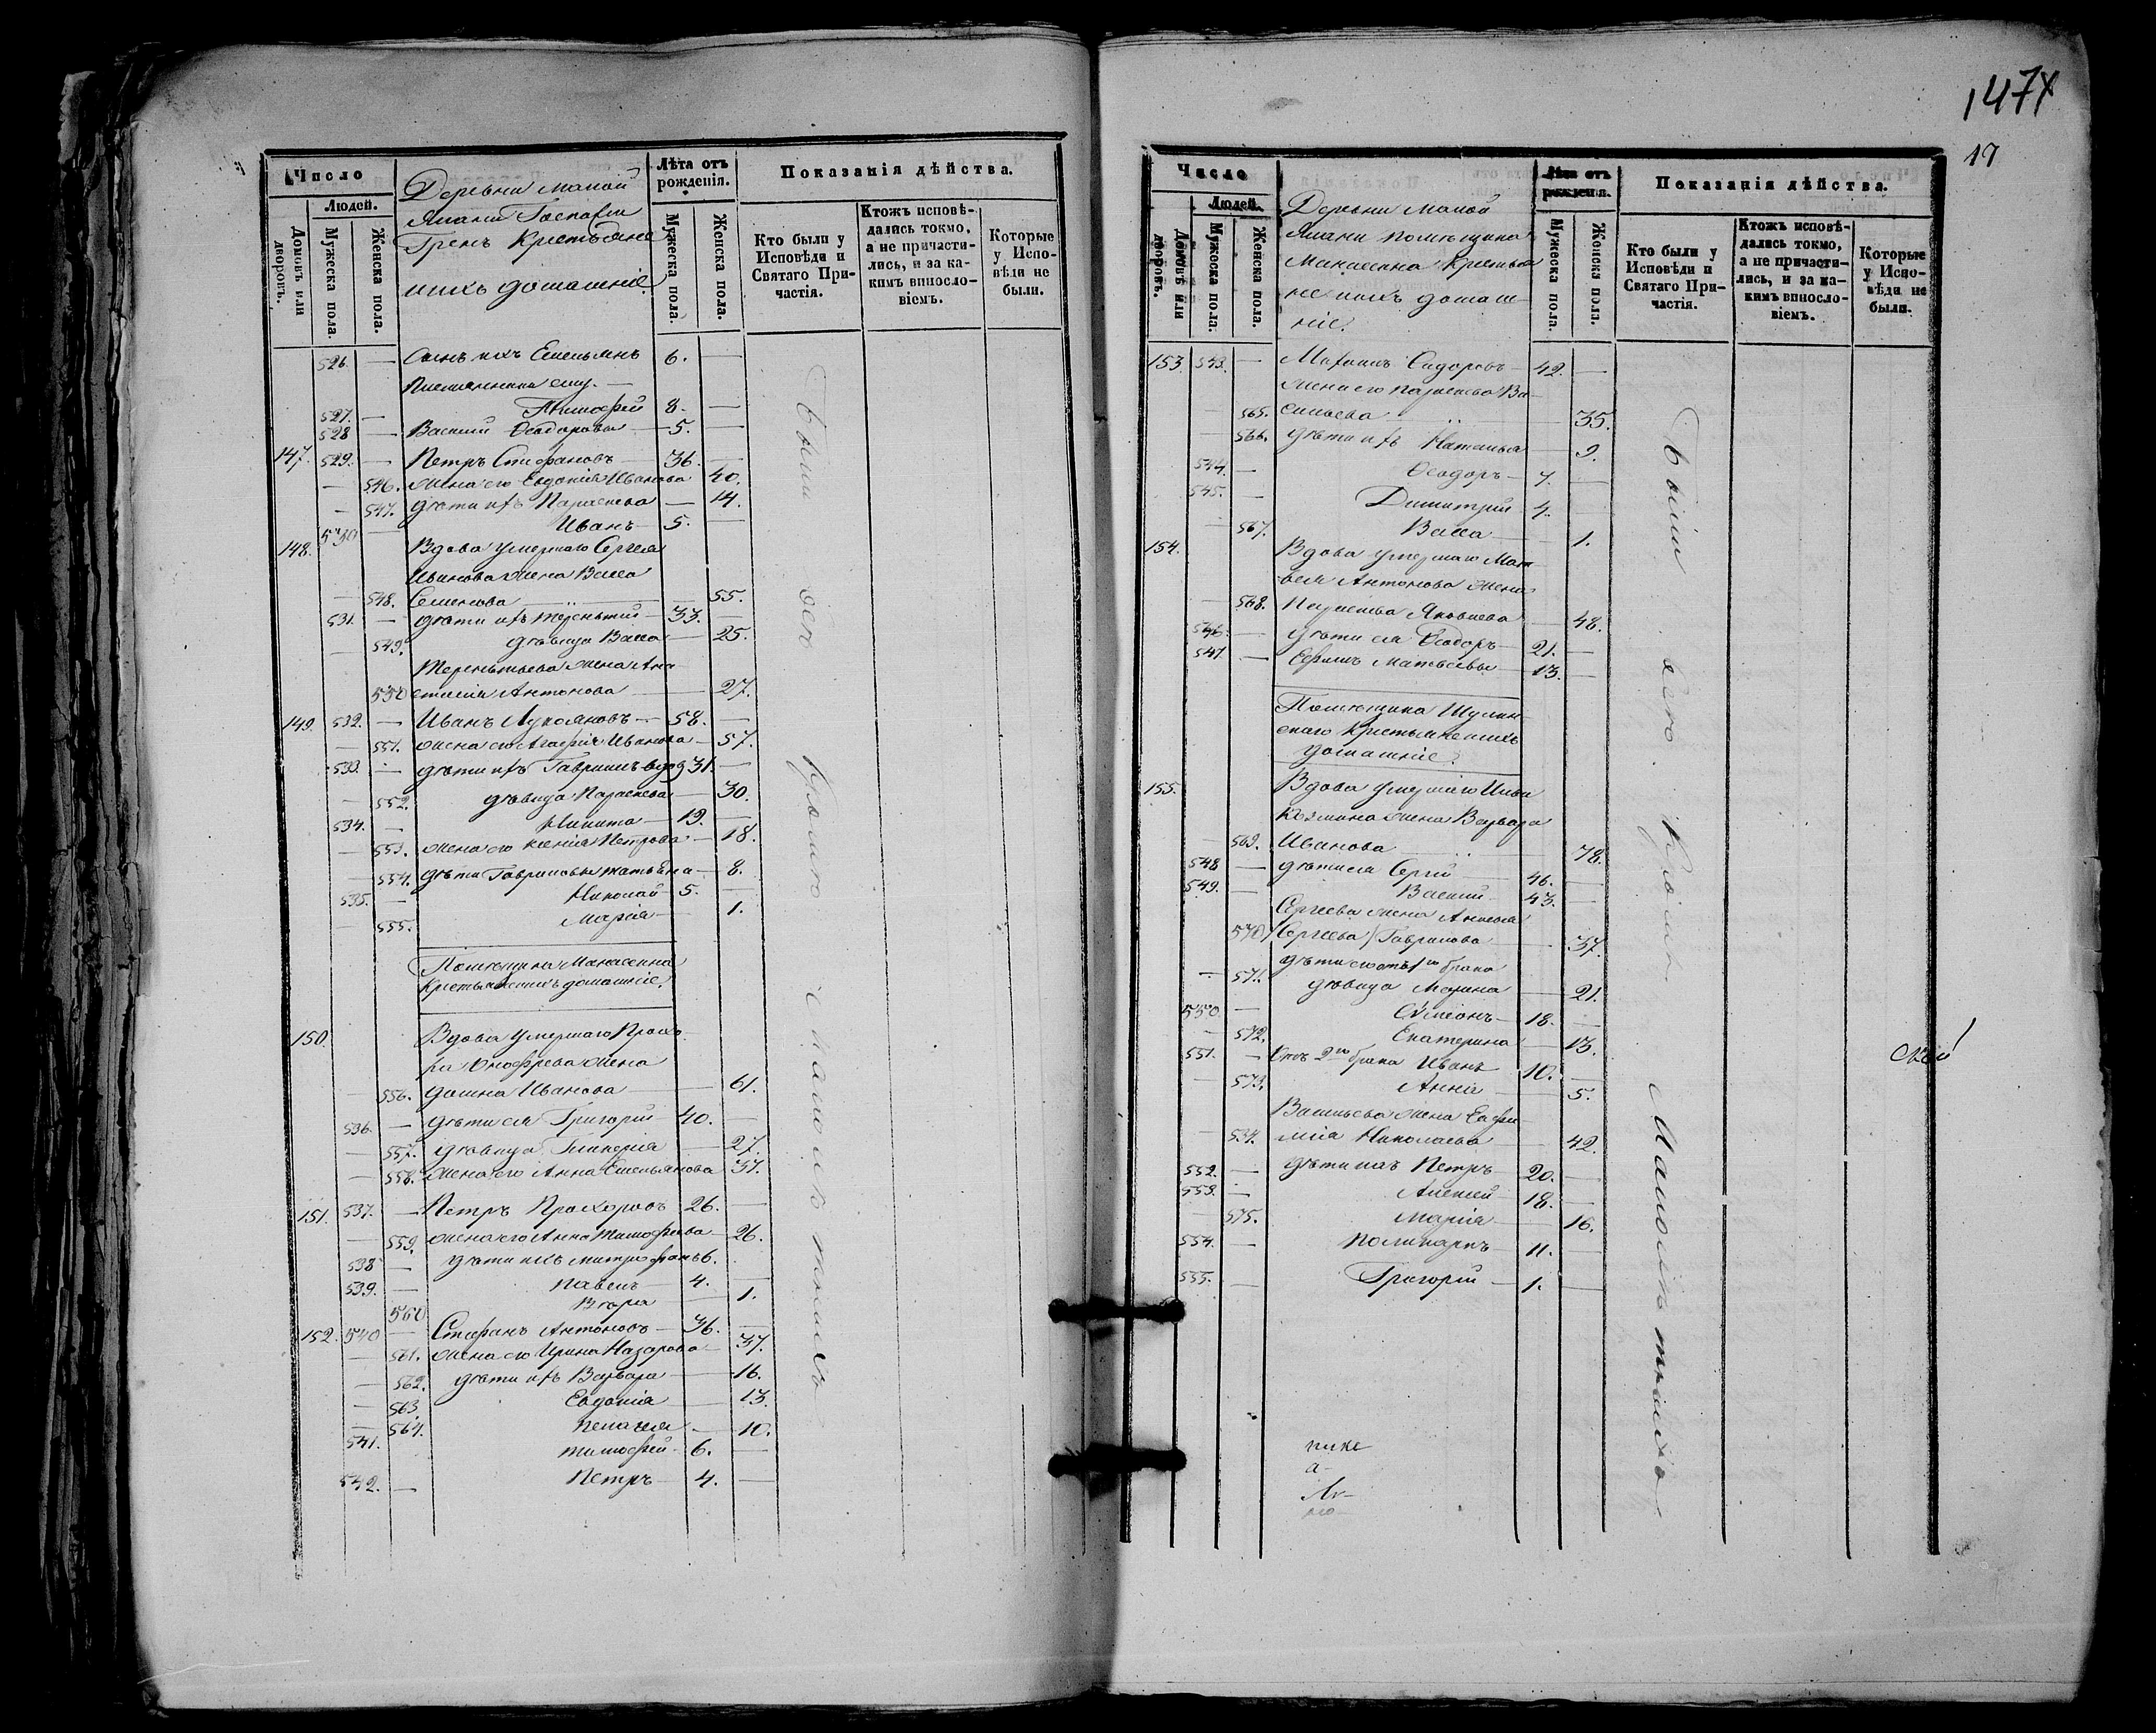 147
17
Число
Людей.
Домовъ или дворовъ.
Мужеска пола.
Женска пола.
Деревни Малой
Гренъ Крестьяне
нихъ домашніе.
Лѣта отъ рожденія.
Мужеска пола.
Женска пола.
Показанія дѣйства.
Кто были у Исповѣди и Святаго Причастія.
Ктожъ исповѣдались токмо, а не причастились, и за какимъ винословіемъ.
Которые у Исповѣди не были.
526. — Сынъ ихъ Емельянъ 6. —
Племянники ему. —
527. — Тимофей 8. —
528 — Василий Ѳеодорова — 5. —
147. 529. — Петръ Стефановъ — 36. —
— 546. жена его Евдокія Иванова 40.
— 547. дѣти ихъ Параскева — 14.
530 — Иванъ — 5. —
148. Вдова умершаго Сергея
Иванова жена Васса
— 548. Семенова — 55.
531. — дѣти ихъ Терентий — 33. —
— 549. дѣвица Васса — 25.
Терентьева жена Ана
550 стасия Антонова — 27.
149. 532. — Иванъ Лукояновъ — 58. —
— 551. жена его Агафія Иванова — 57.
533. — дѣти ихъ Гавриилъ вдов 31. —
— 552. дѣвица Параскева — 30.
534. — Никита — 19. —
— 553. жена его Ксенія Петрова — 18.
— 554. дѣти Гавриловы Татьяна — 8.
535. — Николай — 5. —
— 555. Марія — 1.
Помѣщика Манасеина
Крестьяне ихъ домашніе.
150. Вдова умершаго Прохо
ра Онофрева жена
— 556. Домна Иванова — 61.
536. — дѣти ея Григорій — 40. —
— 557. дѣвица Гликерія — 27.
— 558. жена его Анна Емельянова 37.
151. 537. — Петръ Прохоровъ 26. —
— 559. жена его Анна Тимофеева — 26.
538 — дѣти ихъ Митрофанъ 6.
539. — Павелъ — 4. —
560 Вѣра 1.
152. 540 — Стефанъ Антоновъ — 36. —
— 561. жена его Ирина Назарова — 37.
— 562. дѣти ихъ Варвара — 16.
— 563. Евдокія — 13.
— 564. Пелагея — 10.
541. Тимофей — 6. —
542. — Петръ — 4. —
были
Число
Людей.
Домовъ или дворовъ.
Мужеска пола.
Женска пола.
Деревни Малой
помѣщика
Манасеина Крестья
не ихъ домаш
ніе.
Лѣта отъ рожденія.
Мужеска пола.
Женска пола.
Показанія дѣйства.
Кто были у Исповѣди и Святаго Причастія.
Ктожъ исповѣдались токмо, а не причастились, и за какимъ винословіемъ.
Которые у Исповѣди не были.
153. 543. — Сидоровъ — 42. —
жена его Параскева Ва
— 565. сильева — 35.
— 566. дѣти ихъ Наталья — 9.
544. — Ѳеодоръ — 7. —
545. — Димитрий — 4.
— 567. Васса — 1.
154. Вдова умершаго Мат
вея Антонова жена
— 568. Параскева Яковлева — 48.
546. — дѣти ея Ѳеодоръ — 21. —
547. — Ефимъ Матвѣевы — 13. —
Помѣщика
Крестьяне ихъ
домашніе.
155. Вдова умершаго Ильи
Козмина жена Варвара
— 569. Иванова — 78.
548 — дѣти ея Сергій — 46. —
549. — Василий — 43. —
Сергеева жена
570 Сергеева / Гаврилова — 37.
дѣти его отъ 1го брака
— 571. дѣвица Марина — 21.
550 — Симеонъ — 18. —
— 572. Екатерина — 13.
551. — Отъ 2го брака Иванъ 10. —
— 573. Анна — 5.
Васильева жена Евфи
— 574. мія Николаева — 42.
552. — дѣти ихъ Петръ — 20. —
553. — Алексей — 18. —
575. Марія — 16.
554. — Поликарпъ — 11. —
555. — Григорій — 1. —
были